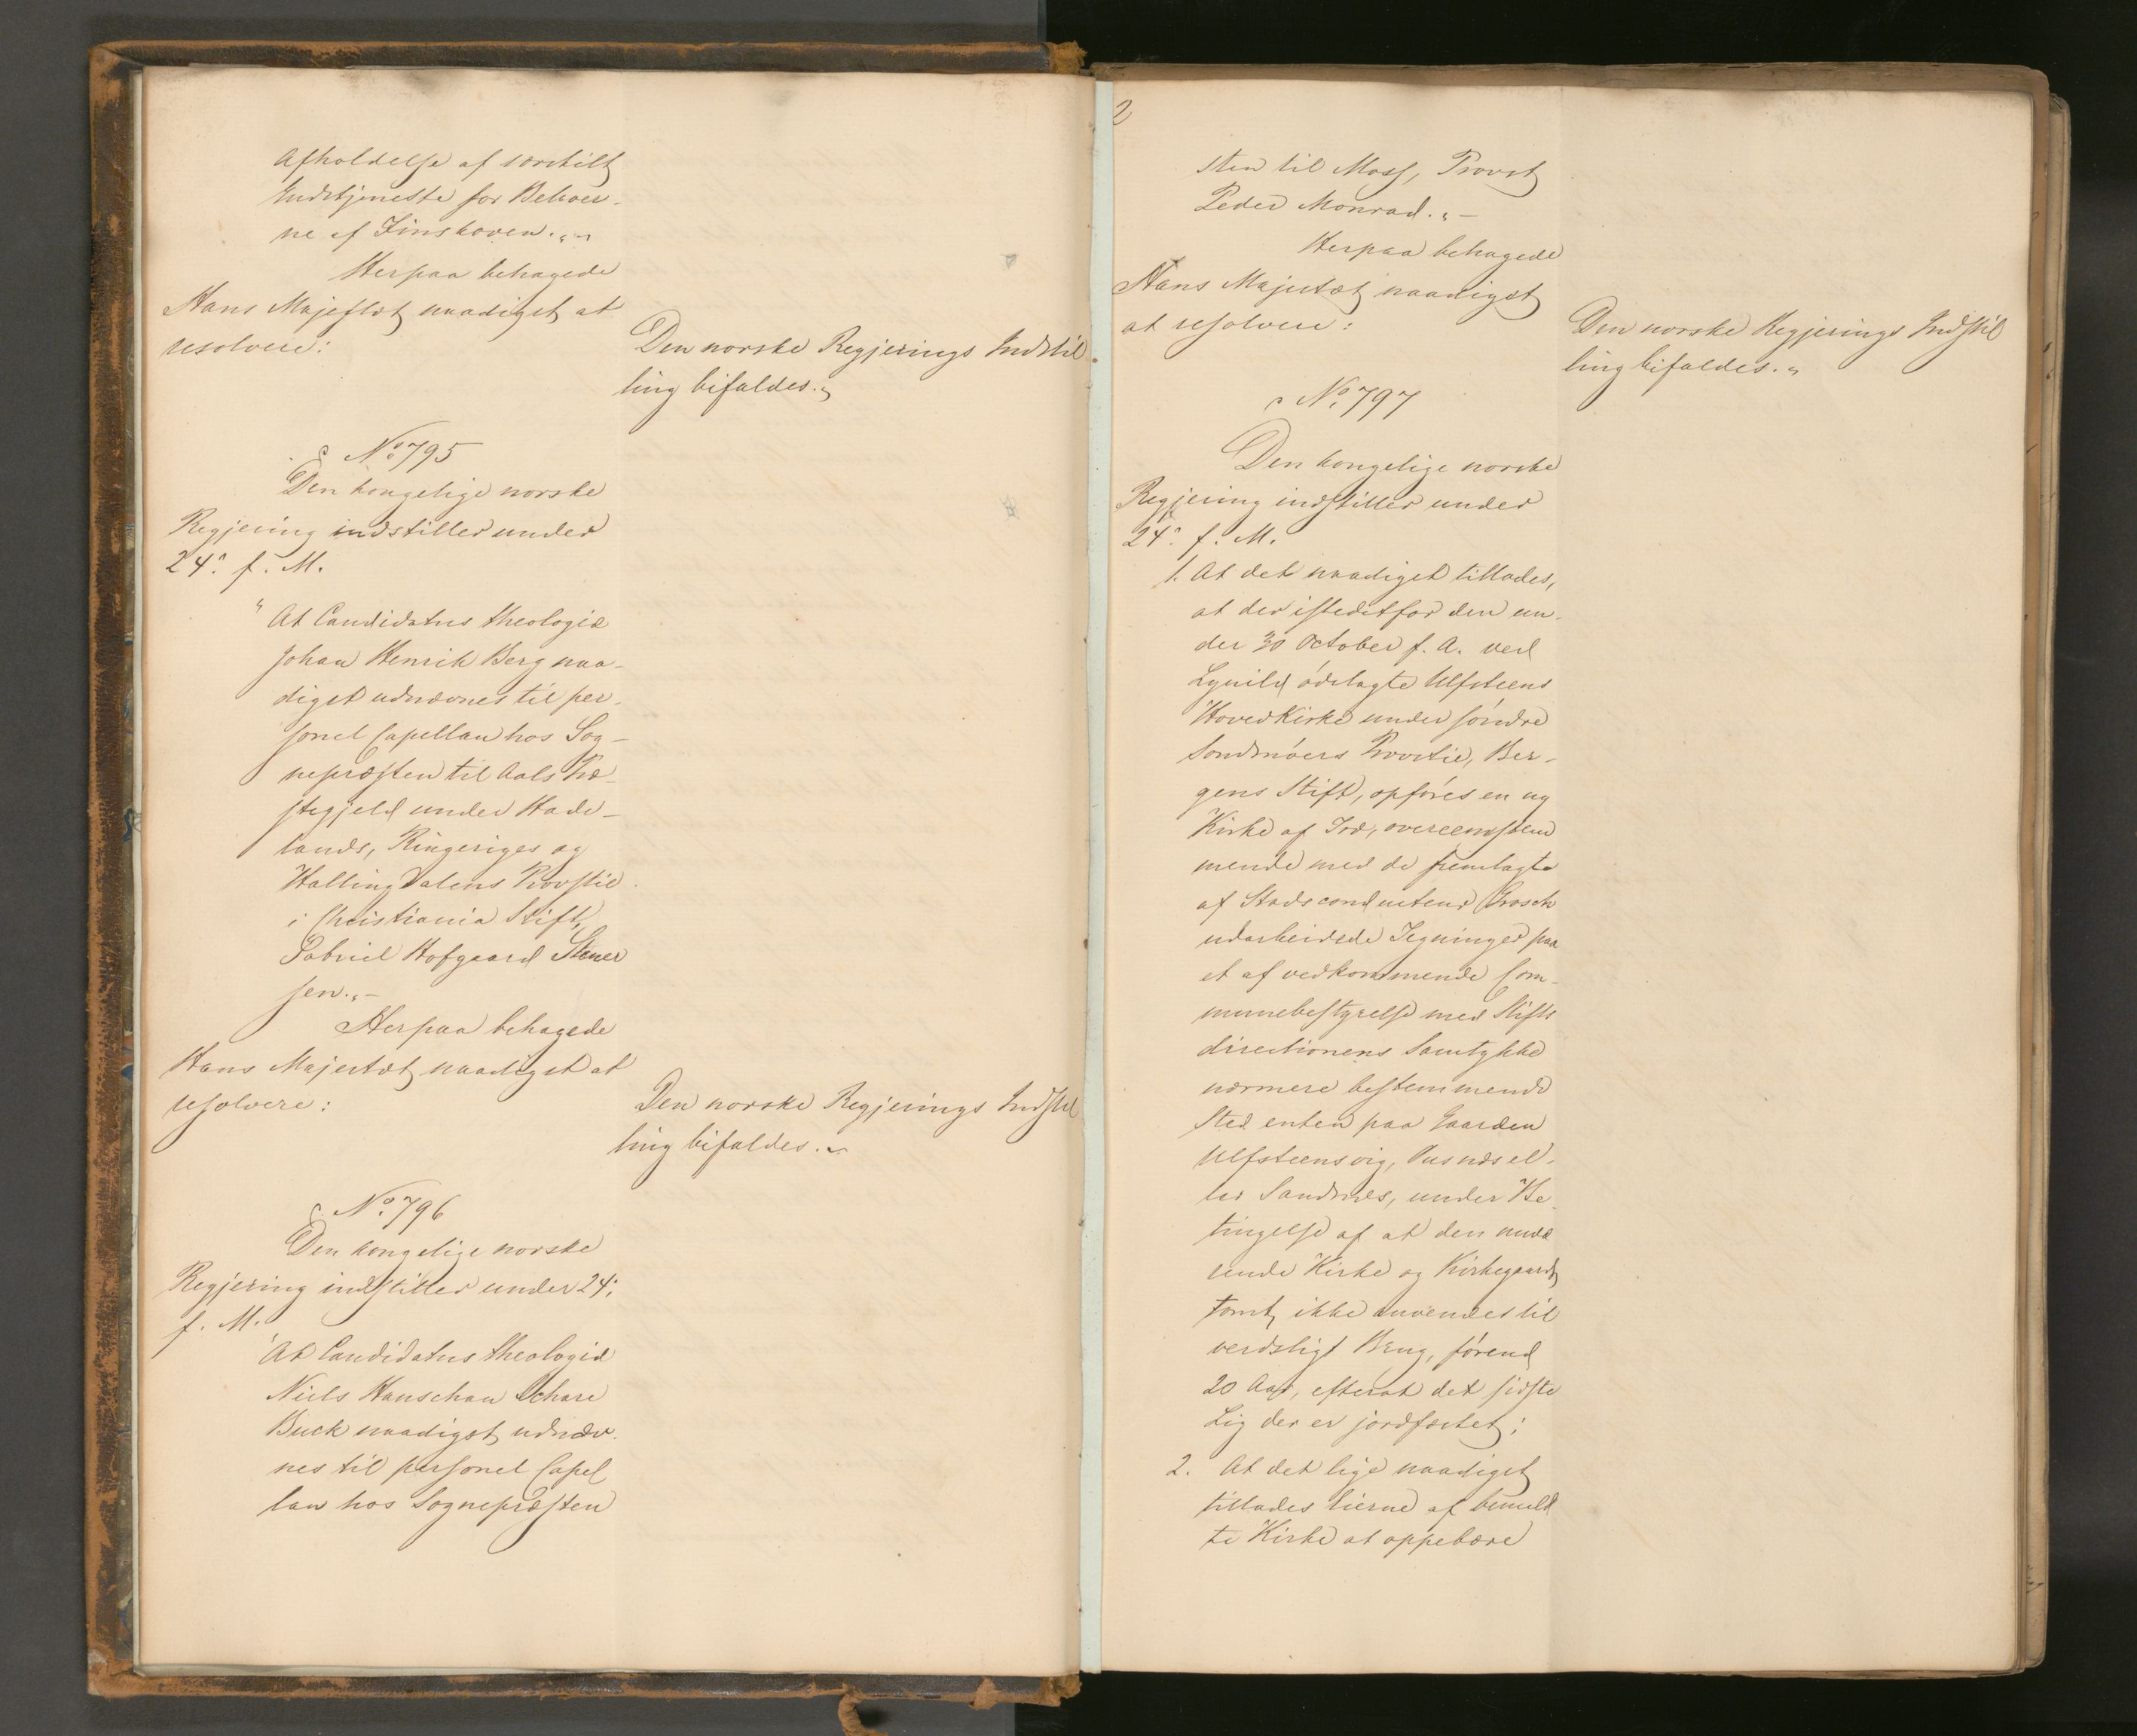 Afholdelse af særskilt
Gudstjeneste for Beboer-
ne af Finskoven."
Herpaa behagede
Hans Majestæt naadigst at
resolvere:
Den norske Regjerings Indstil
ling bifaldes."
No 795
Den kongelige norske
Regjering indstiller under
24: f. M.
"At Candidatus theologiæ
Johan Henrik Berg naa-
digst udnævnes til per-
sonel Capellan hos Sog-
nepræsten til Aals Præ-
stegjeld under Hade-
lands, Ringeriges og
Hallingdalens Provstie
i Christiania Stift,
Gabriel Hofgaard Stener
sen."-
Herpaa behagede
Hans Majestæt naadigst at
resolvere:
Den norske Regjerings Indstil
ling bifaldes."
No 796
Den kongelige norske
Regjering indstiller under 24:
f. M.
"At Candidatus theologiæ
Niels Schare
Buck naadigst udnæv-
nes til personel Capel
lan hos Sognepræsten
2
sten til Moss, Provst
Peder Monrad."-
Herpaa behagede
Hans Majestæt naadigst
at resolvere:
Den norske Regjerings Indstil
ling bifaldes."
No 797
Den kongelige norske
Regjering indstiller under
24: f. M.
1. At det naadigst tillades,
at der istedetfor den un-
der October f. A. ved
Lynild ódelagte Ulfsteens
Hovedkirke under sóndre
Sondmóers Provstie, Ber-
gens Stift, opfóres en ny
Kirke af Træ, overeenstem
mende med de fremlagte
af Stadsconducteur Grosch
udarbeidede Tegninger paa
et af vedkommende Com-
munebestyrelse med Stifts
directionens Samtykke
nærmere bestemmende
Sted enten paa Gaarden
Ulfsteensvig, el-
ler Sandnæs, under Be-
tingelse af at den nuvæ
rende Kirke og Kirkegaards
tomt ikke anvendes til
verdsligt Brug, fórend
20 Aar, efterat det sidste
Lig der er jordfæstet;
2. At det lige naadigst
tillades Eierne af bemeld
te Kirke at oppebære